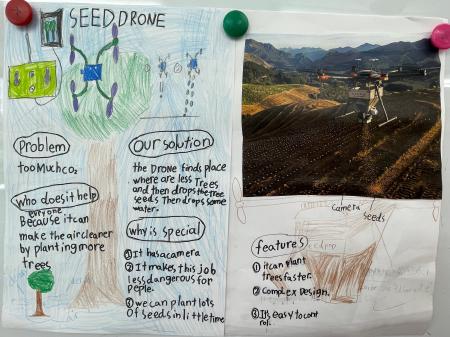 SEED DRONE
Problem
too Much co2
who does it help
everyone
Because it can
make the air cleaner
by planting more
trees
our solution
the Drone finds place
where are less Trees
and then drops the tree
seeds Then drops some
water.
why is special
① It has a camera
② It makes this job
less dangerous for
peple.
③ we can plant lots
of seeds in little time
camera
seeds
features
① it can plant
trees faster.
② Complex Design.
③ It's easy to cont
rol.